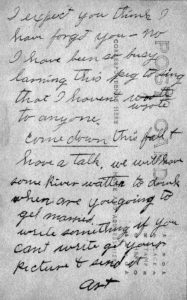 I expect you think I
have forgot you - No
I have been so busy
learning this pig to sing
that I havent
wrote
to anyone
come down this fall &
have a talk, we will have
some River watter to drink
when are you going to
get married.
write something if you
cant write get your
picture & send it
Art
POST CARD